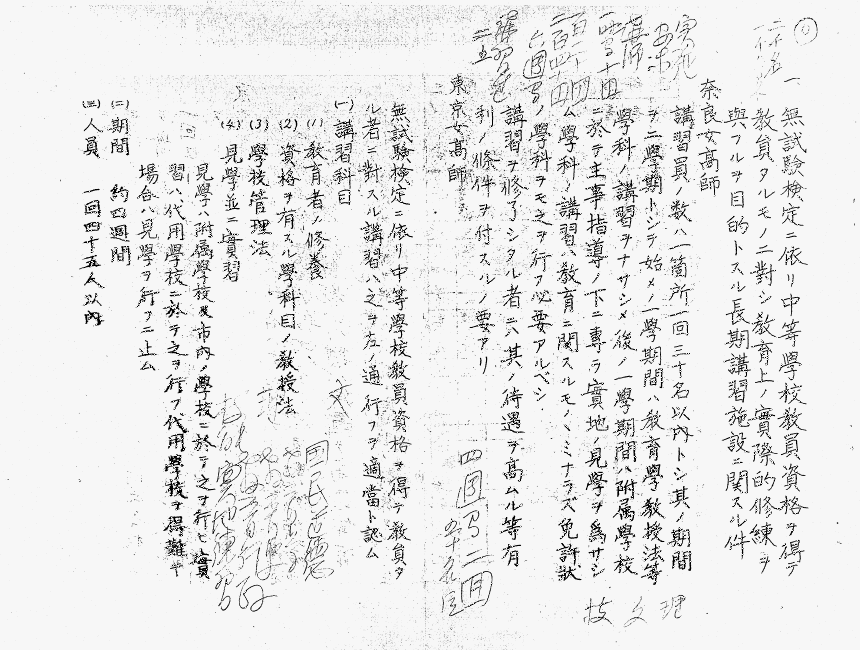 一、無試驗檢定ニ依リ中等學校教員資格ヲ得テ
教員タルモノニ對シ教育上ノ實際的修練ヲ
與フルヲ目的トスル長期講習施設ニ関スル件
奈良女高師
講習員ノ数ハ一箇所一回三十名以內トシ其ノ期間
ヲ二學期トシテ始メノ一學期間ハ教育學教授法等
學科ノ講習ヲナサシメ後ノ一學期間ハ附属學校
ニ於テ主事指導ノ下ニ專ラ實地ノ見學ヲ為サシ
ム學科ノ講習ハ教育ニ関スルモノヽミナラズ免許狀
ノ學科ヲモ之ヲ行フ必要アルベシ
講習ヲ修了シタル者ニハ其ノ待遇ヲ高ムル等有
利ノ條件ヲ付スルノ要アリ
東京女高師
無試驗檢定ニ依リ中等學校教員資格ヲ得テ教員タ
ル者ニ對スル講習ハ之ヲ左ノ通行フヲ適當ト認ム
(一)講習科目
(1)教育者ノ修養
(2)資格ヲ有スル學科目ノ教授法
(3)學校管理法
(4)見學並ニ實習
見學ハ附属學校及市內ノ學校ニ於テ之ヲ行ヒ實
習ハ代用學校ニ於テ之ヲ行フ代用學校ヲ得難キ
場合ハ見學ヲ行フニ止ム
(二)期間 約四週間
(三)人員 一回四十五人以內
講師
講習
四回
二回
理
文
國民道德